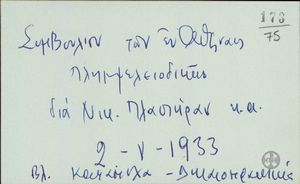 173
75
Συμβούλιον των εν Αθήναις
Πλημμελειοδικών
διά Νικ. Πλαστήραν κ.α.
2-V-1933
Βλ.